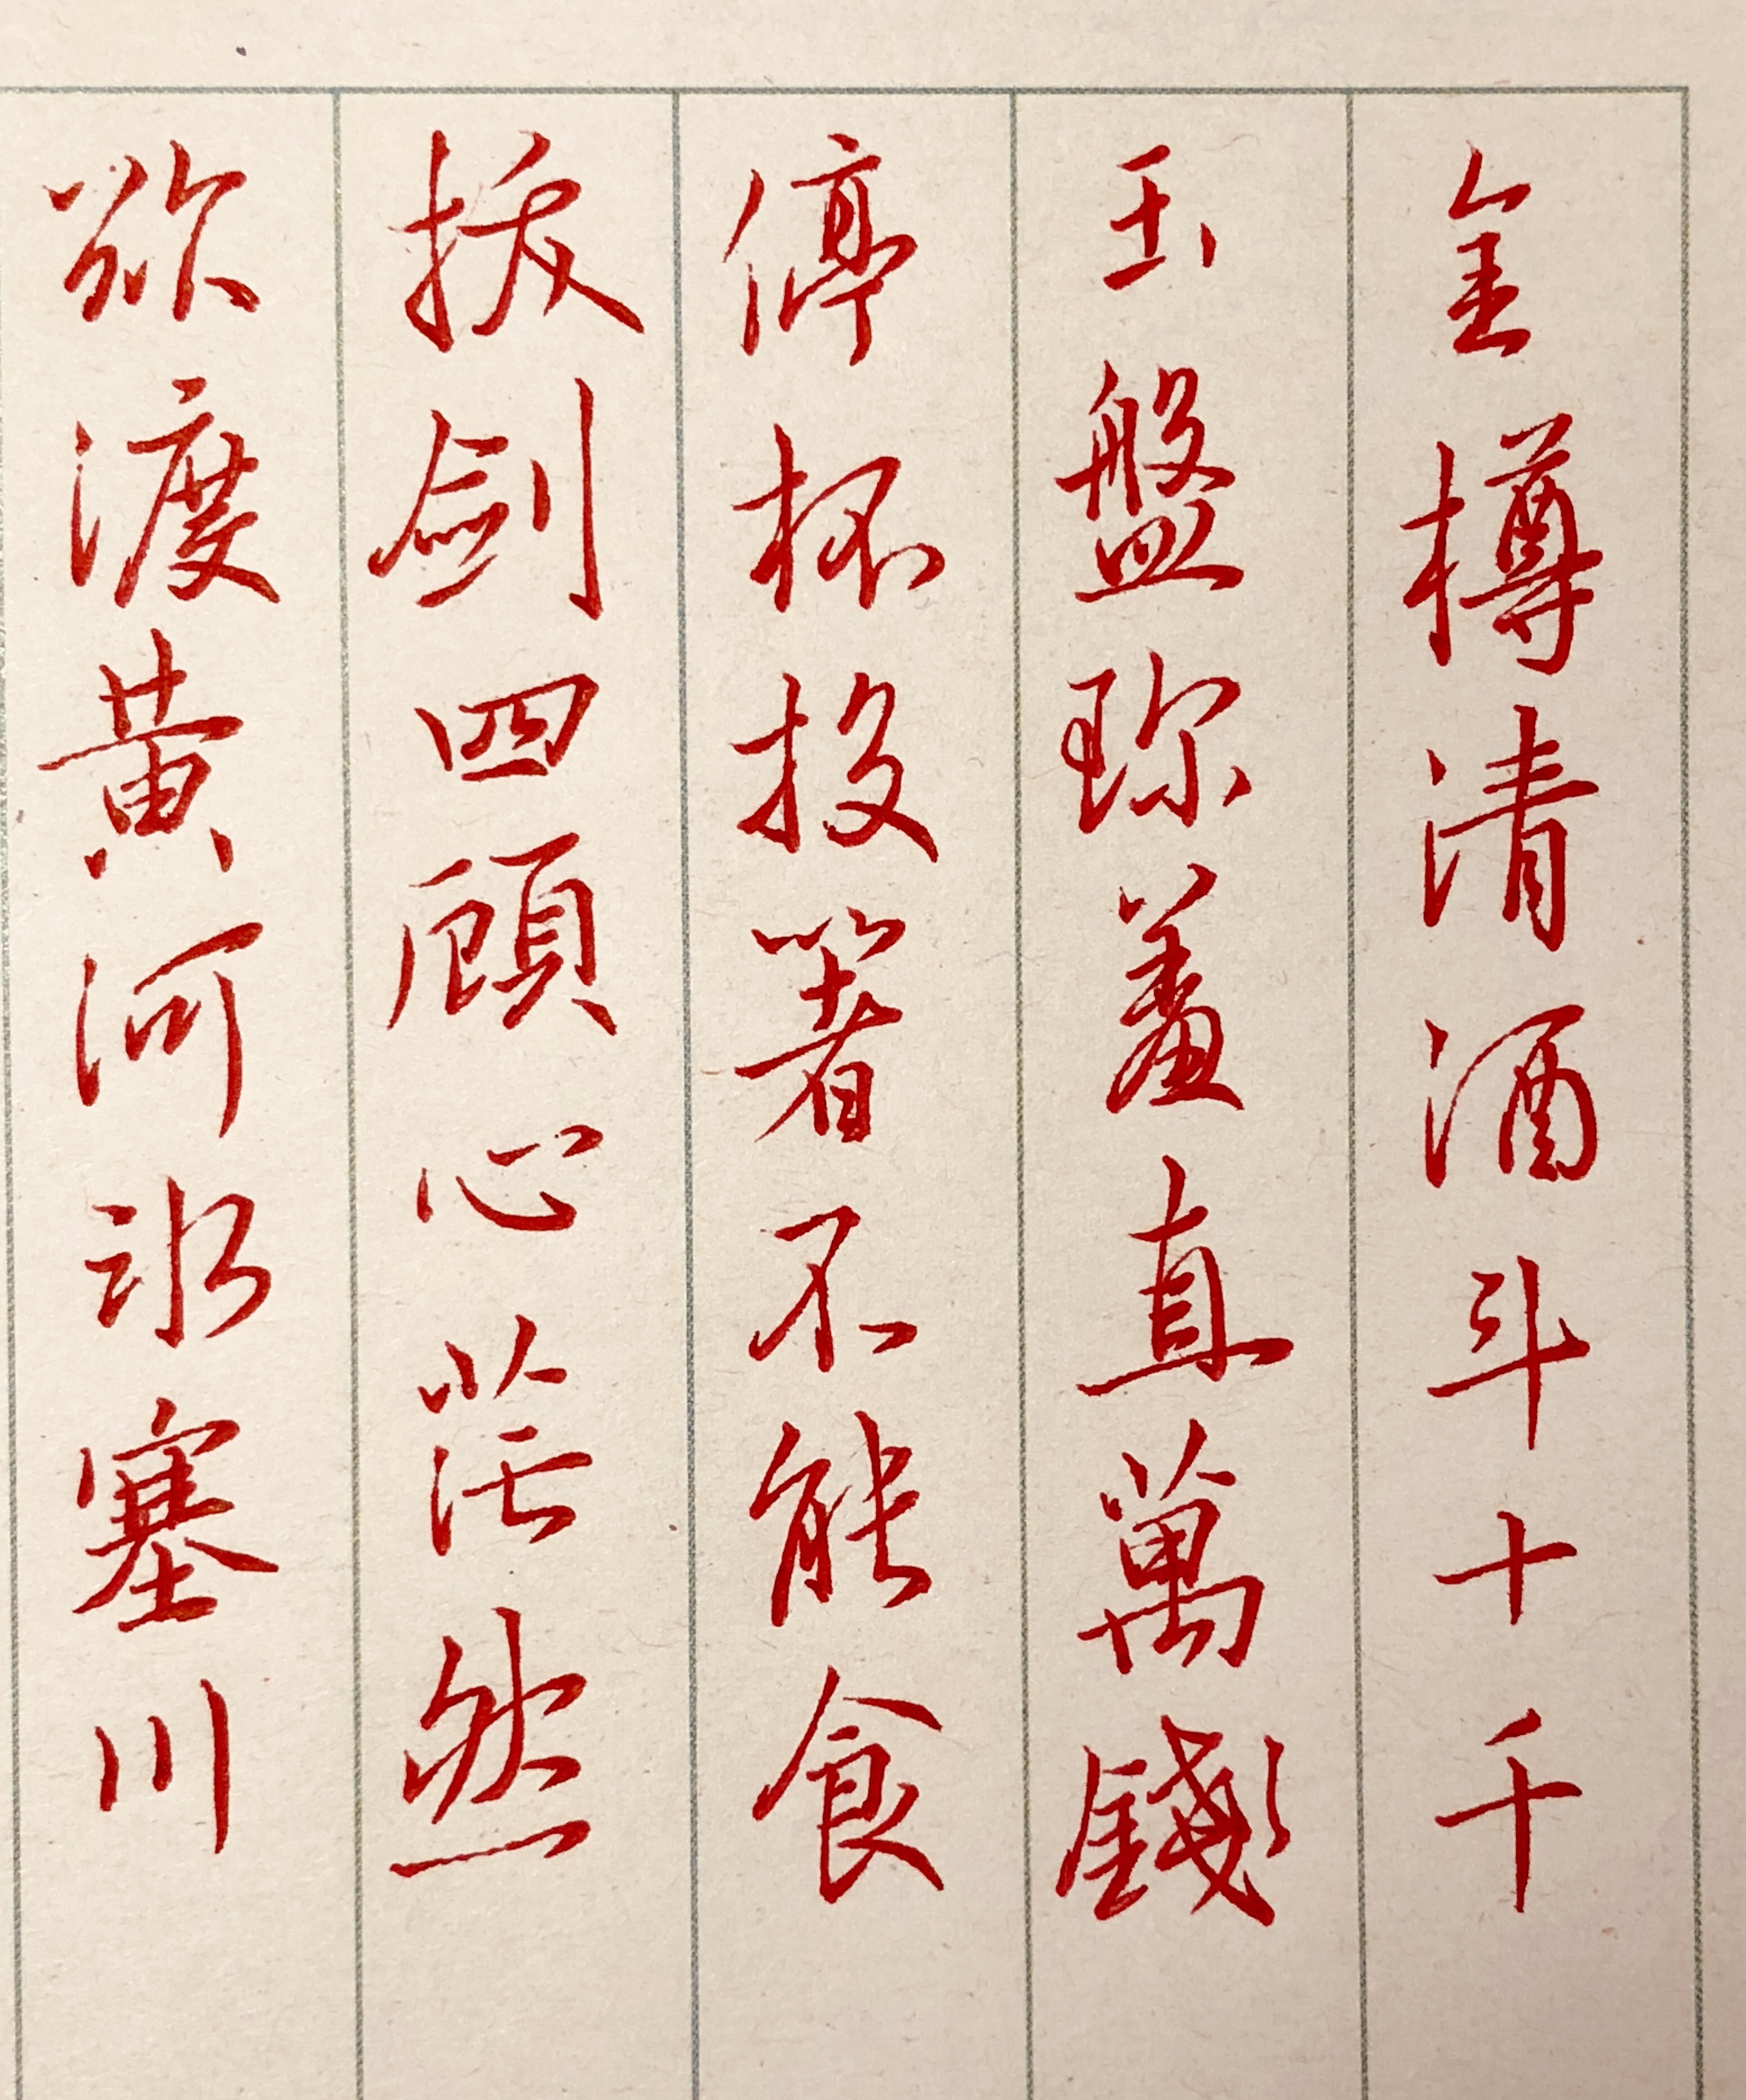 金樽清酒斗十千
玉盤珎羞直萬錢
停杯投箸不能食
拔劍四顧心茫然
欲渡黃河冰塞川